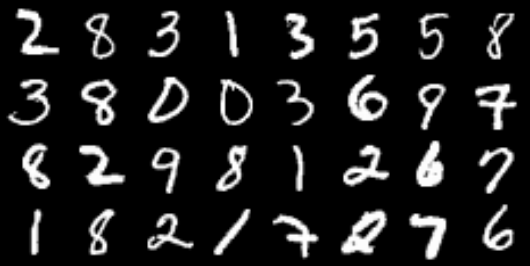 2 8 3 1 3 5 5 8
3 8 0 0 3 6 9 7
8 2 9 8 1 2 6 7
1 8 2 1 7 2 7 6